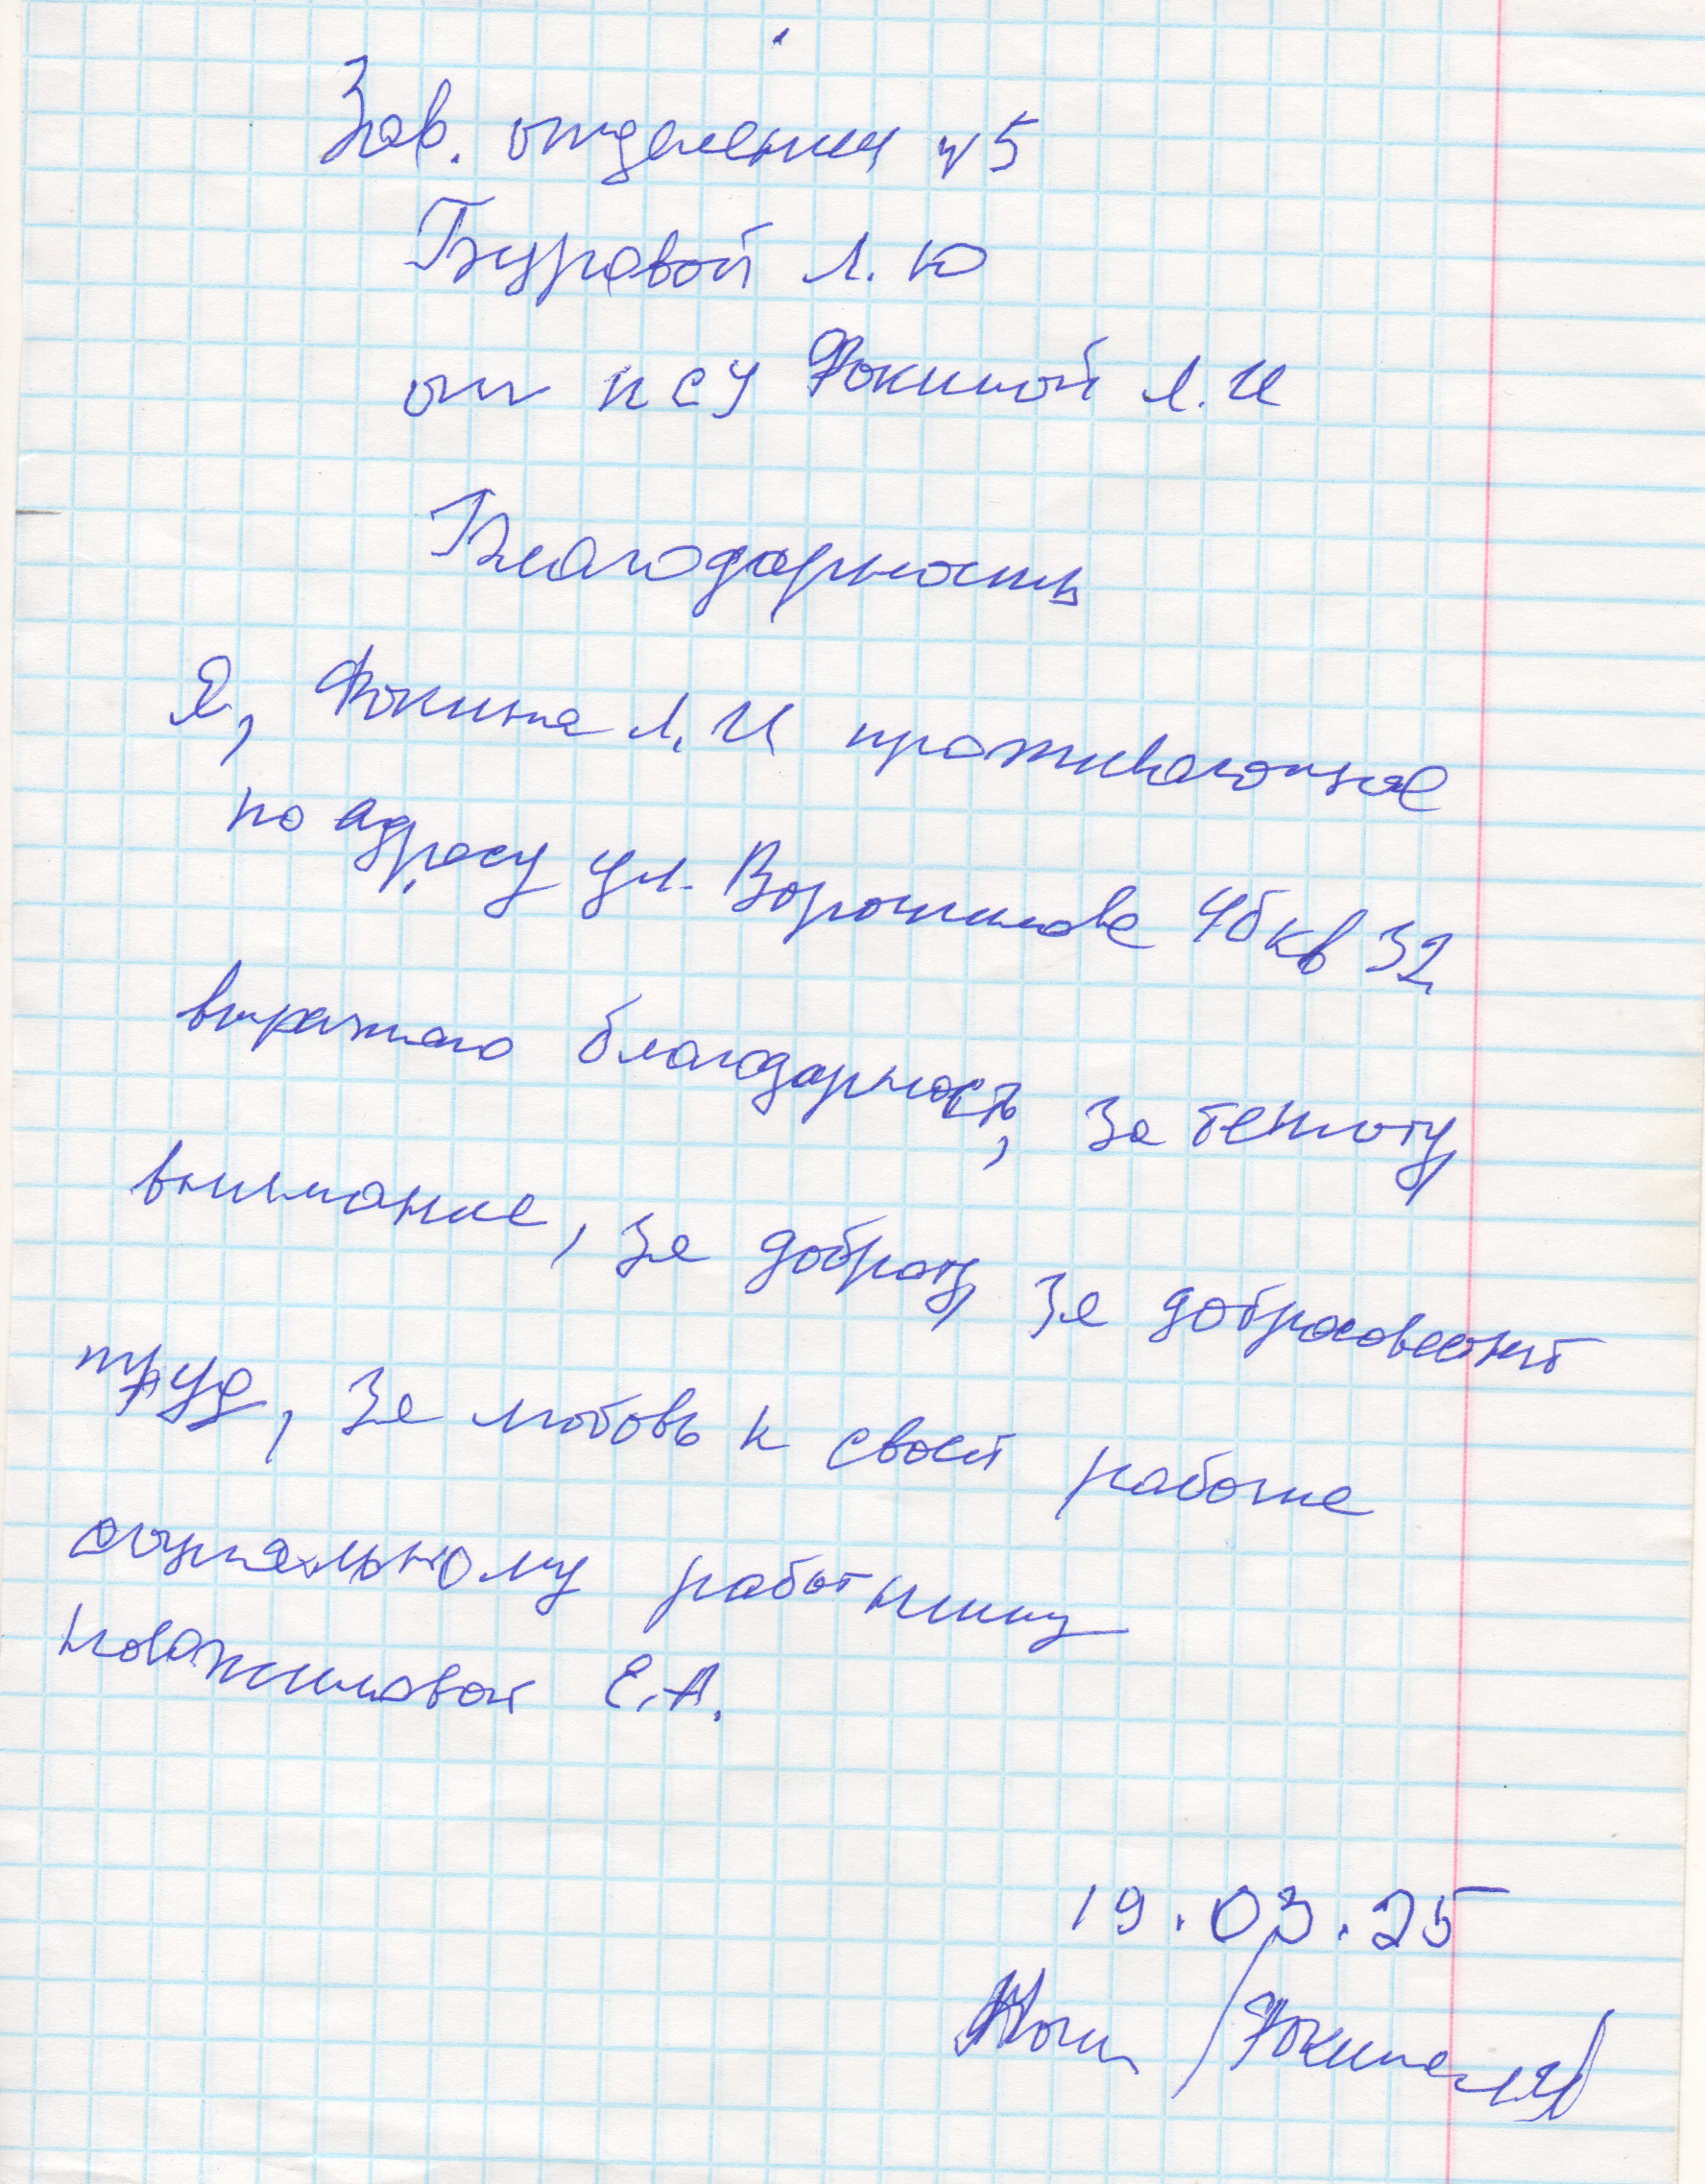 Зав. отделения №5
Буровой Л. Ю
от ПСУ Фокиной Л. И
Благодарность
Я, Фокина Л. И проживающая
по адресу ул. Ворошилова кв 32
выражаю благодарность, за теплоту
внимание, за доброту, за добросовестн
труд, за любовь к своей работе
социальному работнику
Е.А.
19.03.25
/Фокина Л.И/